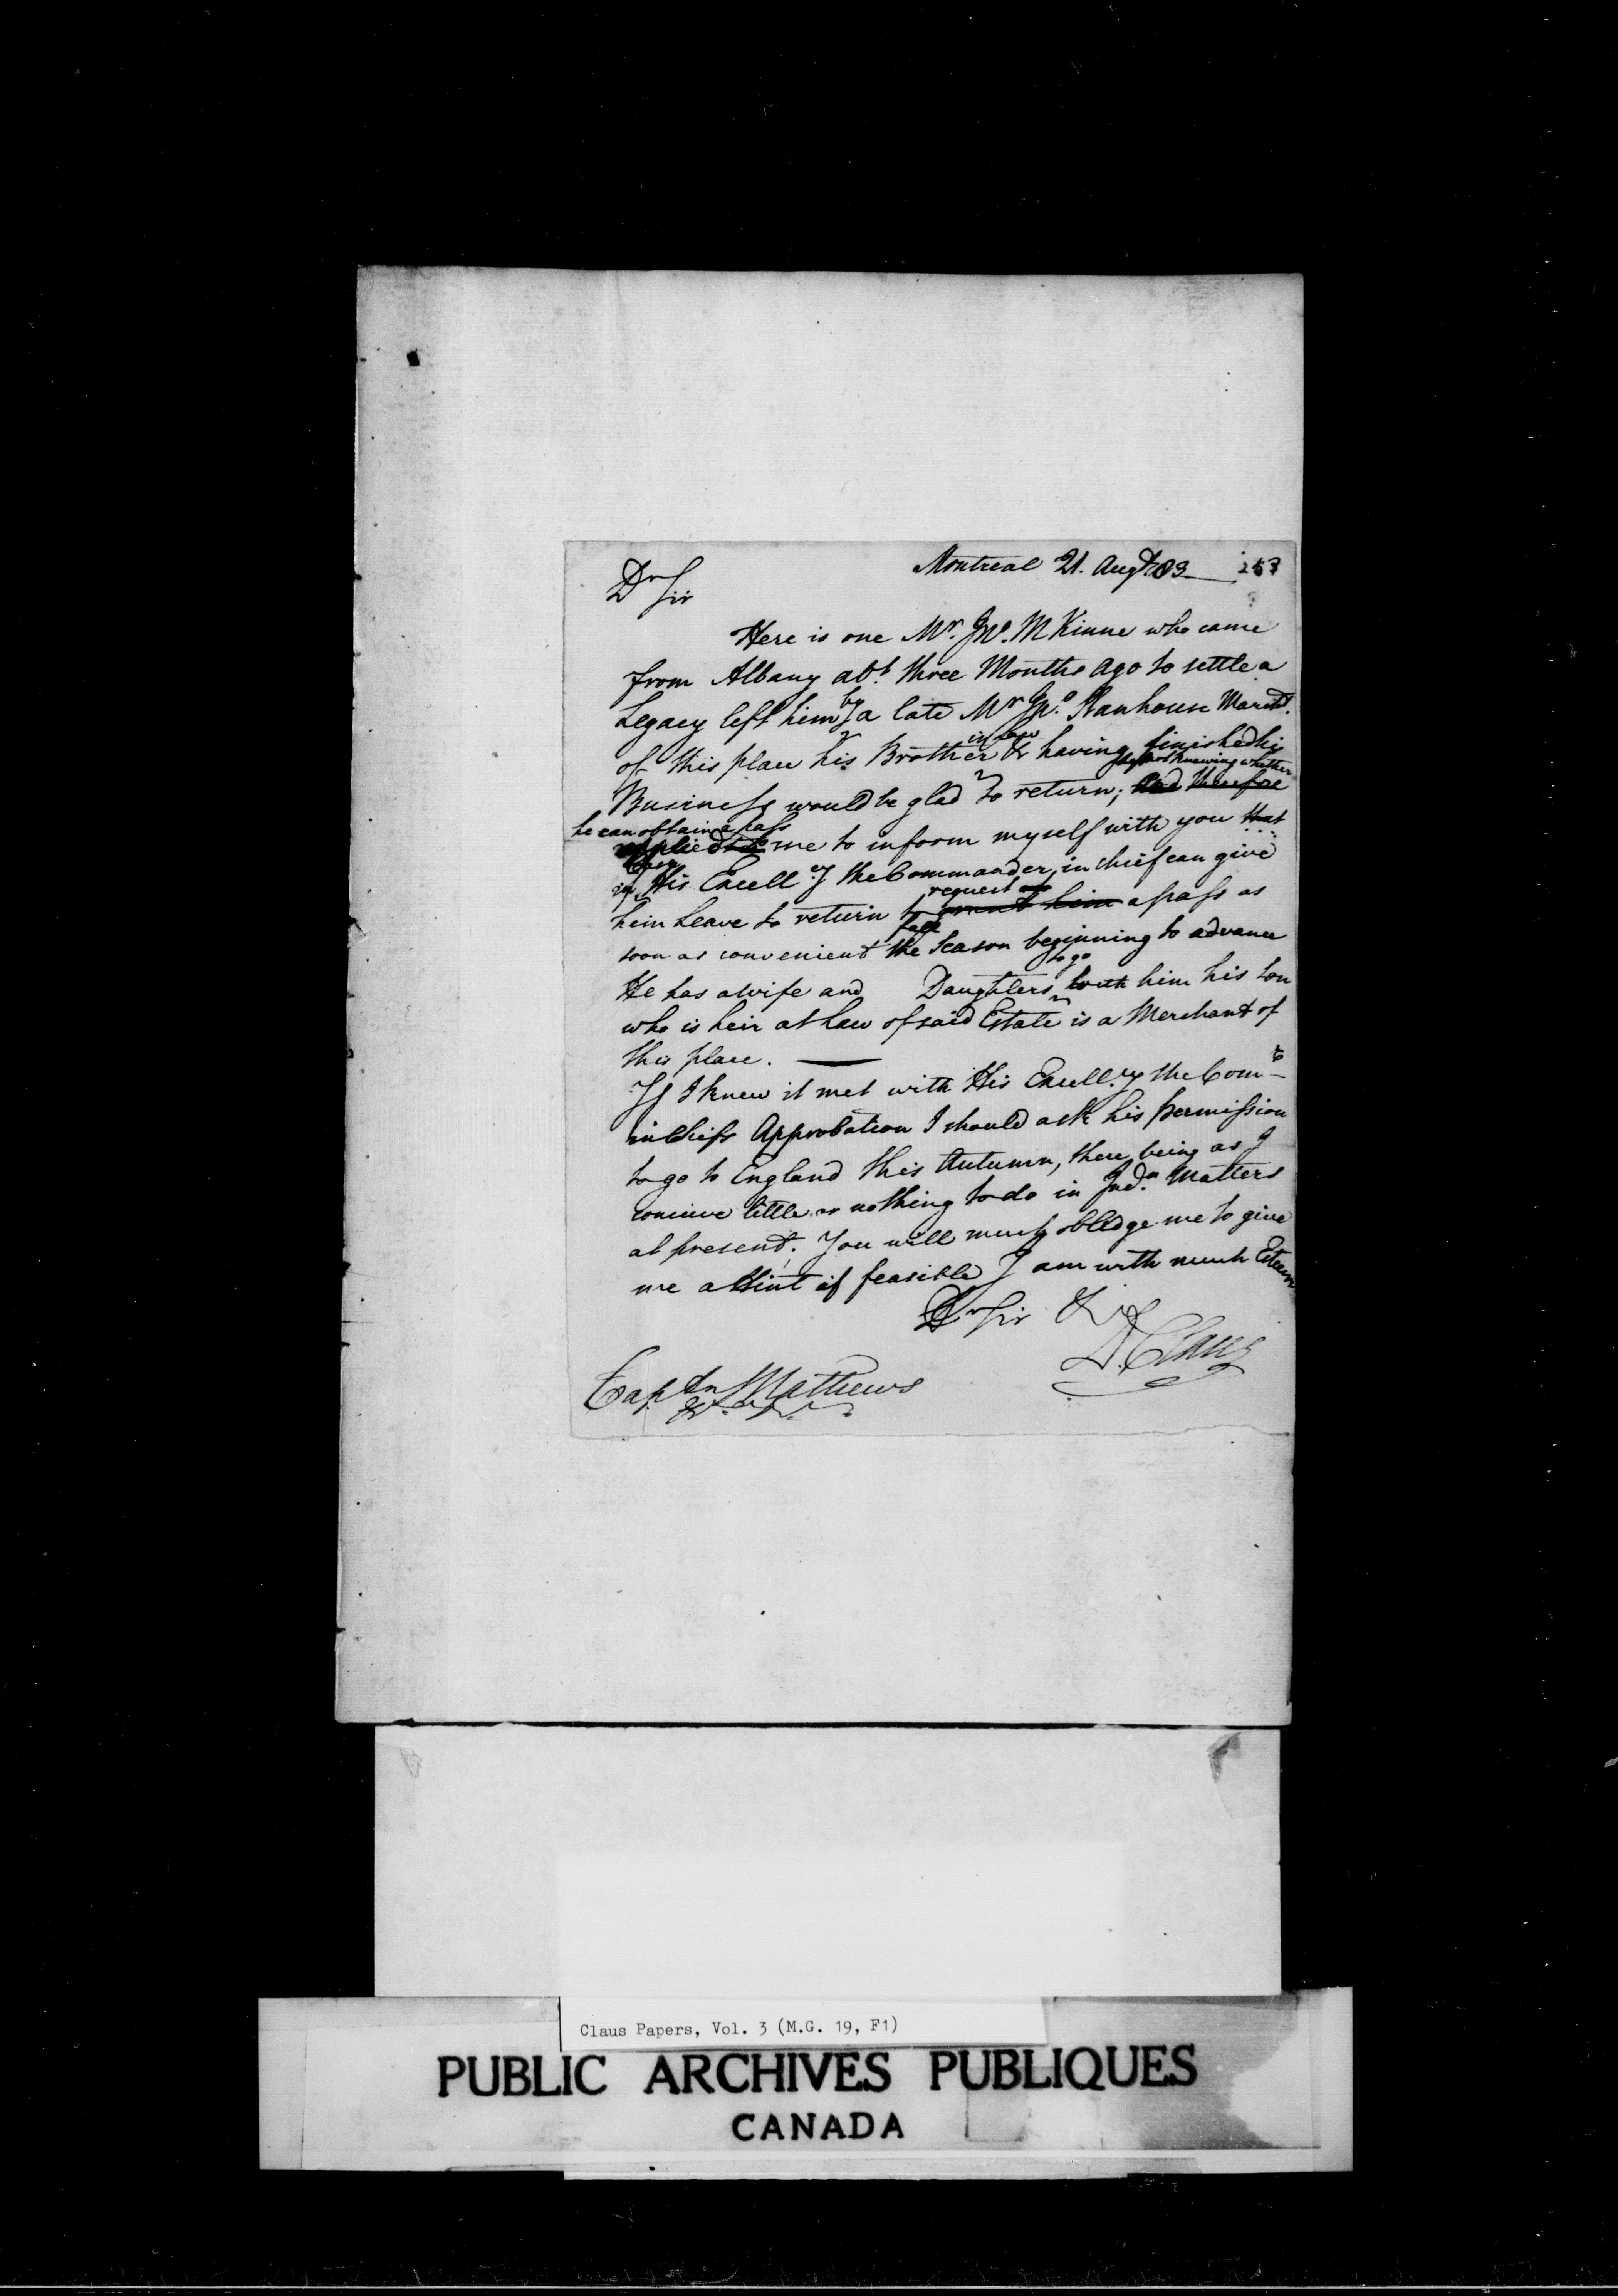 Montreal 21. Augt. 83 253
Dr Sir
Here is one Mr. Jno. McKinne who came
from Albany abt. three Months ago to settle a
Legacy left him by a late Mr Jno. Stanhouse Marcht.
in law
of this place his Brother & having finished his
not knowing whether
Business would be glad to return; and therefore
he can obtain a pass
applied to me to inform myself with you that
if His Excell.cy the Commander in chief can give
request
him Leave to return to grant him a pass as
soon as convenient the Season beginning to advance
to go
He has a Wife and Daughters with him his Son
who is heir at Law of said Estate is a Merchant of
this place.
If I knew it met with His Excell.cy the Com
in Chiefs Approbation I should ask his permission
to go to England this Autumn, there being as I
conceive little or nothing to do in Indn. Matters
at present. You will much obledge me to give
me a Hint if feasible I am with much Esteem
Dr Sir &c
D. Claus
Captn Mathews
&c. &c.
Claus Papers, Vol. 3 (M.G. 19, F1)
PUBLIC ARCHIVES PUBLIQUES
CANADA